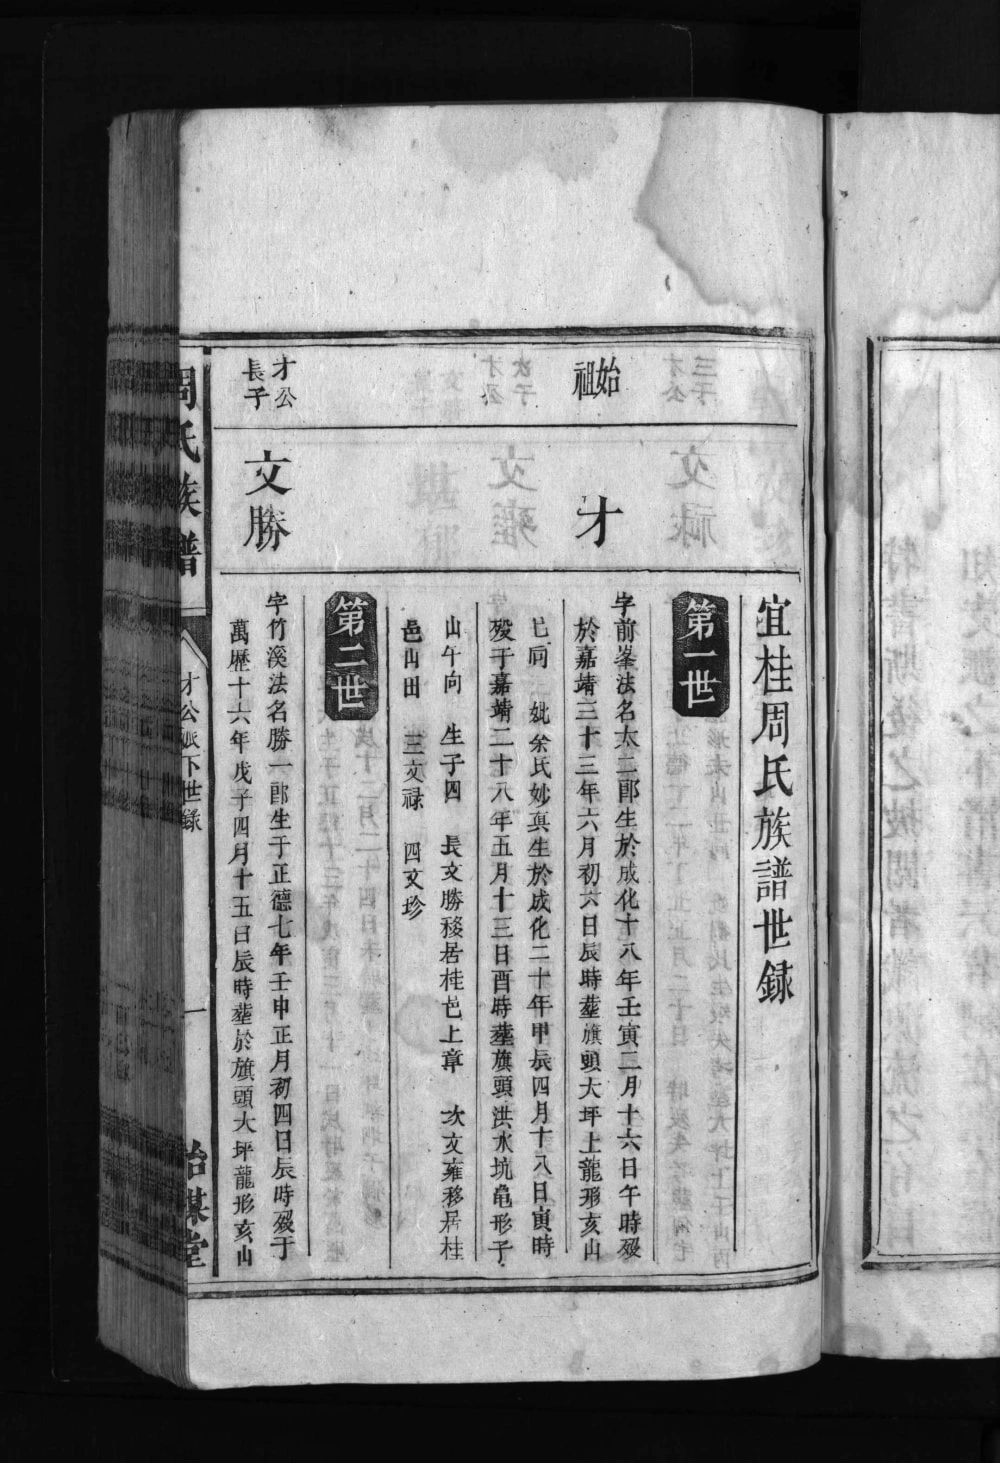 宜桂周氏族譜世錄
始祖
才
第一世
字前峯法名太二郎生於成化十八年壬寅二月十六日午時殁
於嘉靖三十三年六月初六日辰時塟旗頭大坪上龍形亥山
巳向 妣余氏妙真生於成化二十年甲辰四月十八日寅時
殁于嘉靖二十八年五月十三日酉時塟旗頭洪水坑亀形子
山午向 生子四 長文勝移居桂邑上章 次文雍移居桂
邑山田 三文禄 四文珍
才公長子
文勝
第二世
字竹溪法名勝一郎生于正德七年壬申正月初四日辰時殁于
萬歷十六年戊子四月十五日辰時塟於旗頭大坪龍形亥山
周氏族譜
才公派下世錄
一
詒謀堂